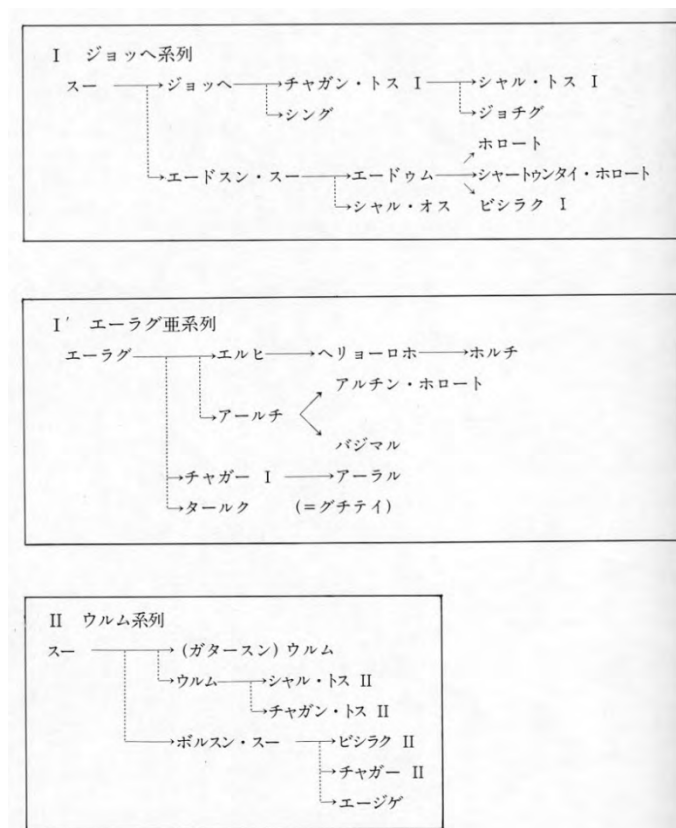 I ジョッヘ系列
スー → ジョッヘ → チャガン・トス I → シャル・トス I
→ シング → ジョチグ
ホロート
→ エードスン・スー → エードゥム → シャートゥンタイ・ホロート
→ シャル・オス ビシラク I
I′ エーラグ亜系列
エーラグ → エルヒ → ヘリョーロホ → ホルチ
アルチン・ホロート
→ アールチ
バジマル
→ チャガー I → アーラル
→ タールク (=グチテイ)
II ウルム系列
スー → (ガタースン) ウルム
→ ウルム → シャル・トス II
→ チャガン・トス II
→ ボルスン・スー → ビシラク II
→ チャガー II
→ エージゲ